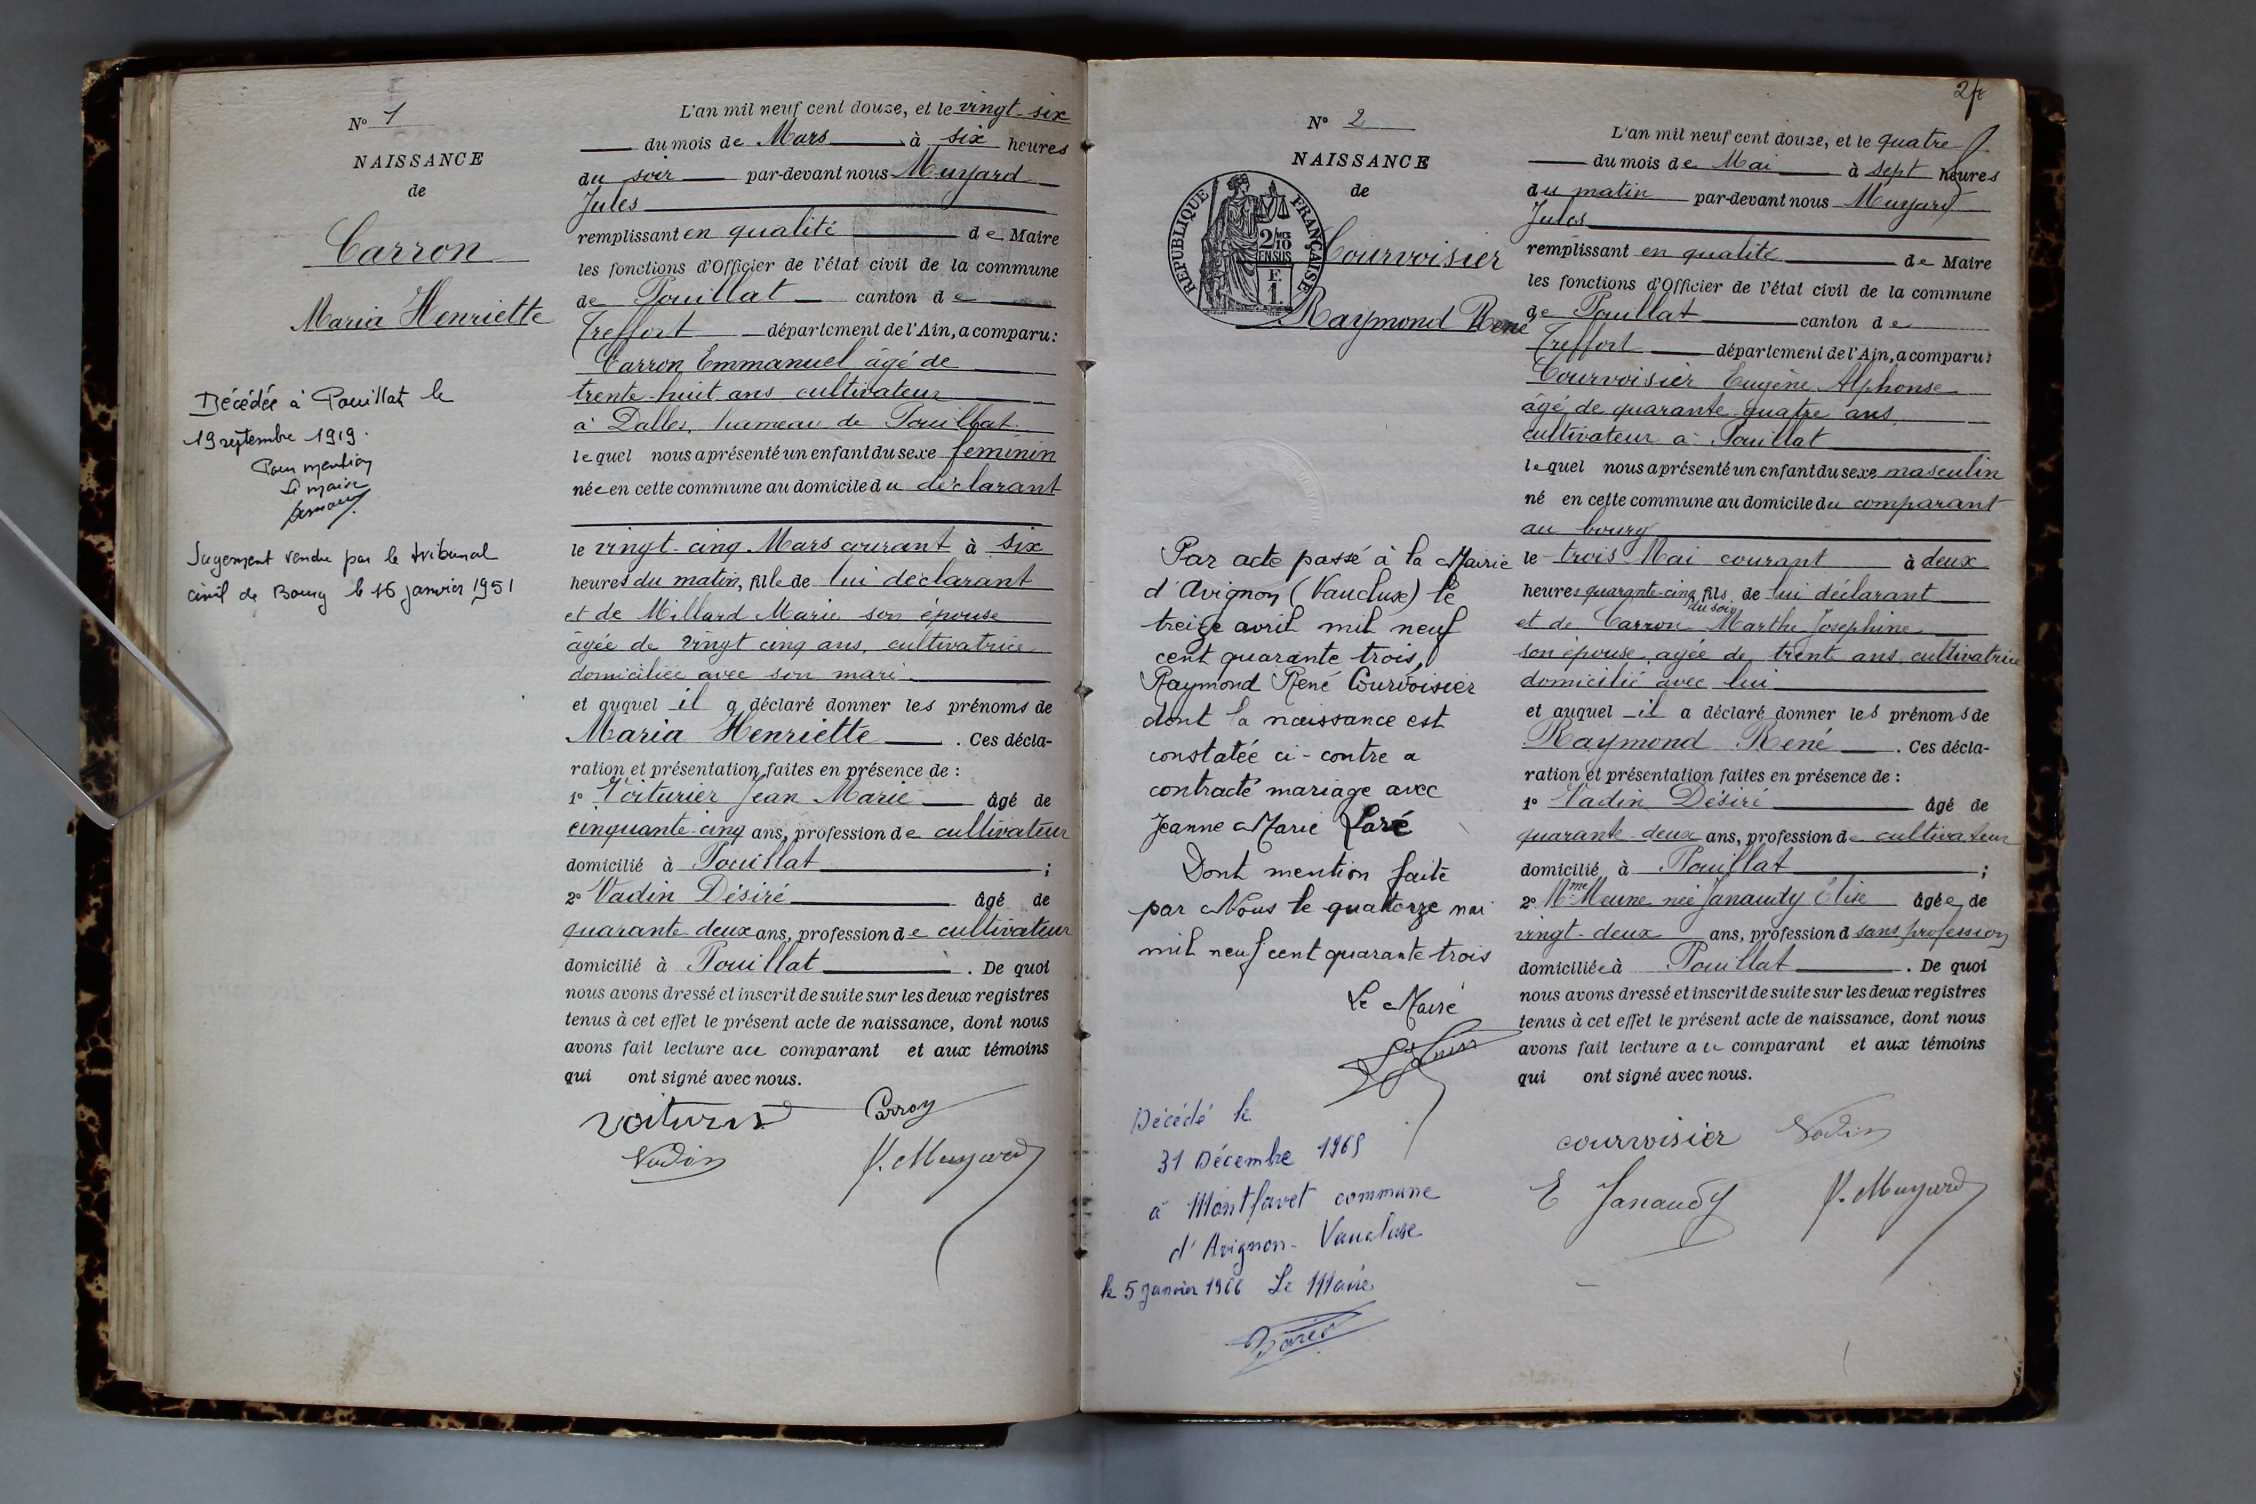 N° 1
NAISSANCE
de
Carron
Maria Henriette
Décédée à Pouillat le
19 septembre 1919.
Pour mention
Le maire
Jugement rendu par le tribunal
civil de Bourg le 16 janvier 1951
L'an mil neuf cent douze, et le vingt-six
du mois de Mars à six heures
du soir par-devant nous Muyard
Jules
remplissant en qualité de Maire
les fonctions d'Officier de l'état civil de la commune
de Pouillat canton de
Treffort département de l'Ain, a comparu:
Carron Emmanuel âgé de
trente-huit ans cultivateur
à Dalles, hameau de Pouillat
lequel nous a présenté un enfant du sexe féminin
née en cette commune au domicile du déclarant
le vingt-cinq Mars courant à six
heures du matin, fille de lui déclarant
et de Millard Marie son épouse
âgée de vingt cinq ans, cultivatrice
domiciliée avec son mari
et auquel il a déclaré donner les prénoms de
Maria Henriette . Ces décla-
ration et présentation faites en présence de :
1° Voiturier Jean Marie âgé de
cinquante-cinq ans, profession de cultivateur
domicilié à Pouillat ;
2° Vadin Désiré âgé de
quarante-deux ans, profession de cultivateur
domicilié à Pouillat . De quoi
nous avons dressé et inscrit de suite sur les deux registres
tenus à cet effet le présent acte de naissance, dont nous
avons fait lecture au comparant et aux témoins
qui ont signé avec nous.
Voiturier Carron
Vadin J. Muyard
N° 2
NAISSANCE
de
RÉPUBLIQUE FRANÇAISE
2/10 EN SUS
F. 1.
Courvoisier
Raymond René
Par acte passé à la Mairie
d'Avignon (Vaucluse) le
treize avril mil neuf
cent quarante trois,
Raymond René Courvoisier
dont la naissance est
constatée ci-contre a
contracté mariage avec
Jeanne Marie
Dont mention faite
par Nous le quatorze mai
mil neuf cent quarante trois
Le Maire
Décédé le
31 Décembre 1965
à Montfavet commune
d'Avignon - Vaucluse
le 5 janvier 1966 Le Maire
L'an mil neuf cent douze, et le quatre
du mois de Mai à sept heures
du matin par-devant nous Muyard
Jules
remplissant en qualité de Maire
les fonctions d'Officier de l'état civil de la commune
de Pouillat canton de
Treffort département de l'Ain, a comparu:
Courvoisier Eugène Alphonse
âgé de quarante-quatre ans
cultivateur à Pouillat
lequel nous a présenté un enfant du sexe masculin
né en cette commune au domicile du comparant
au bourg
le trois Mai courant à deux
heures quarante-cinq du soir, fils de lui déclarant
et de Carron Marthe Joséphine
son épouse, agée de trente ans, cultivatrice
domicilié avec lui
et auquel il a déclaré donner les prénoms de
Raymond René . Ces décla-
ration et présentation faites en présence de :
1° Vadin Désiré âgé de
quarante-deux ans, profession de cultivateur
domicilié à Pouillat ;
2° Mme Meune née Janaudy Élise âgée de
vingt-deux ans, profession d sans profession
domiciliée à Pouillat . De quoi
nous avons dressé et inscrit de suite sur les deux registres
tenus à cet effet le présent acte de naissance, dont nous
avons fait lecture au comparant et aux témoins
qui ont signé avec nous.
courvoisier Vadin
E Janaudy J. Muyard